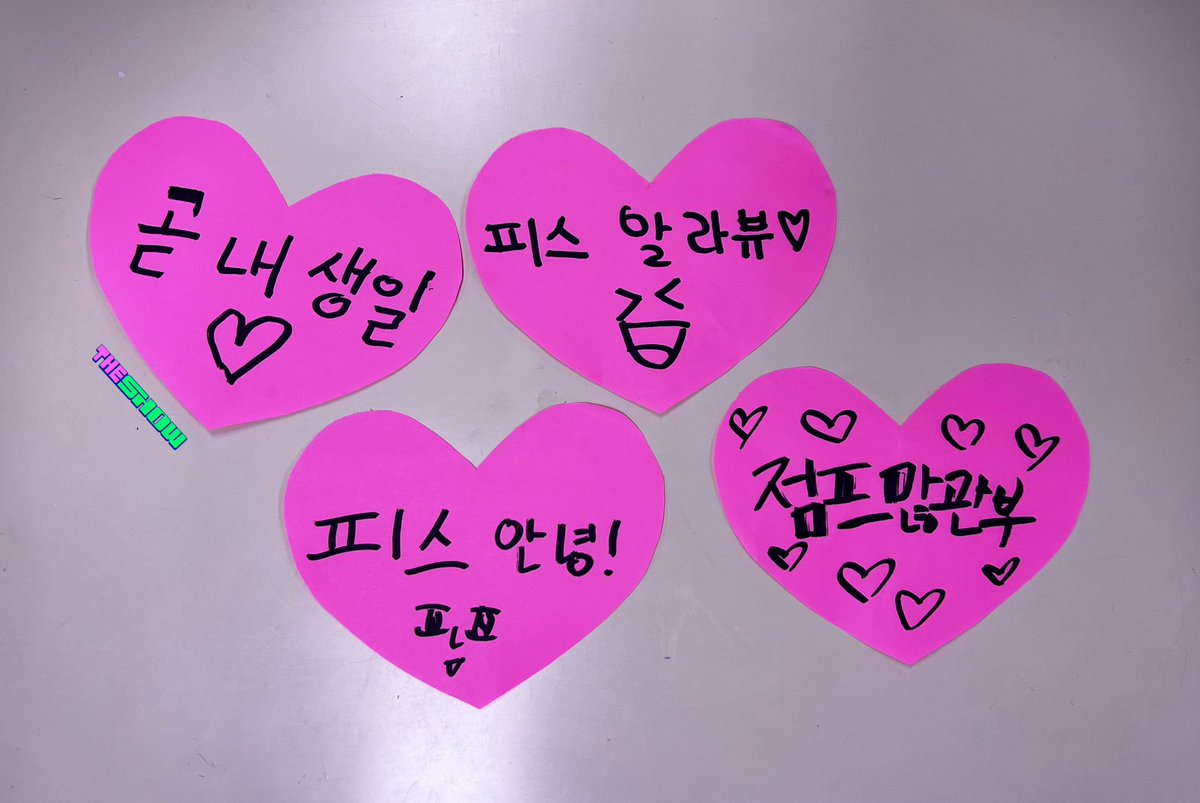 곧 내 생일
♡
THE SHOW
피스 알라뷰♡
피스 안녕!
점프 많관부